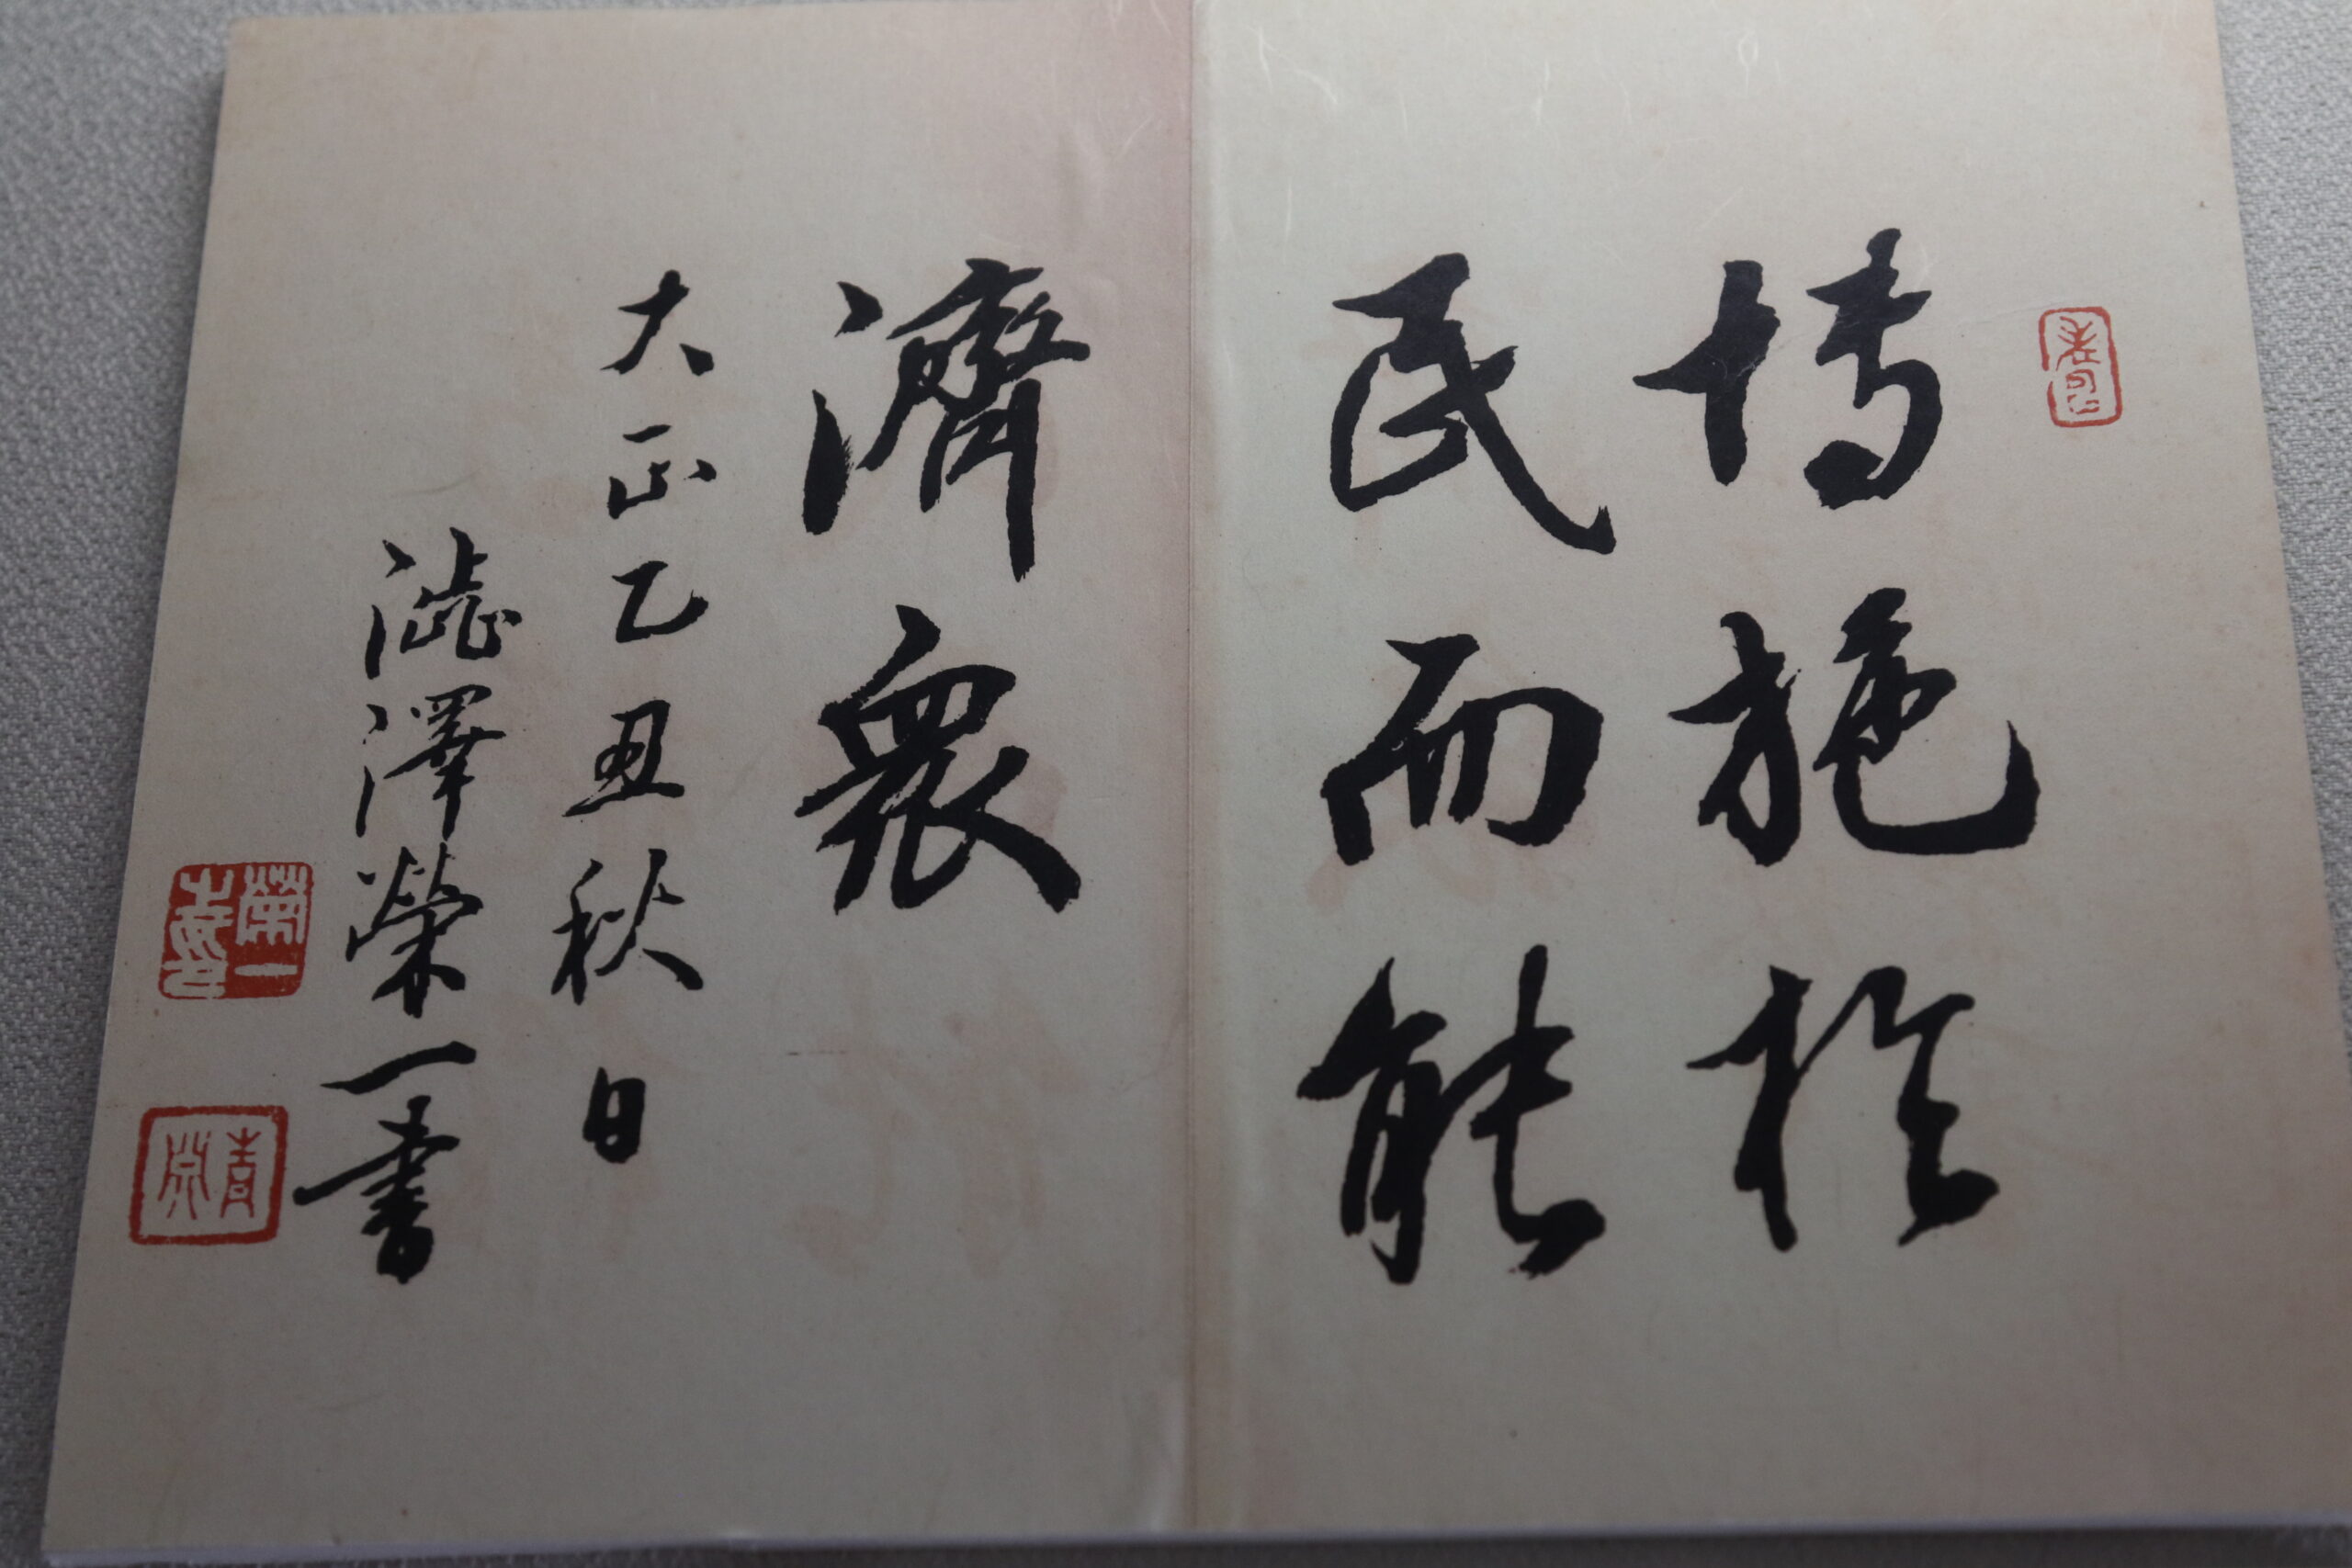 博施於
民而能
濟衆
大正乙丑秋日
澁澤榮一書
青淵